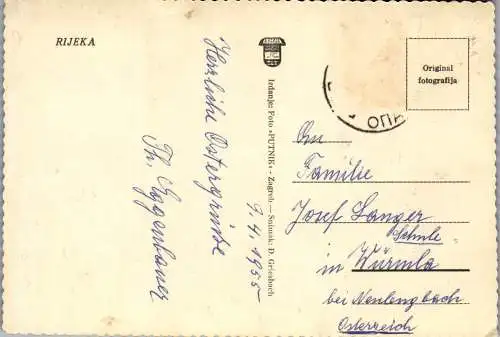 RIJEKA
Herzliche Ostergrüße
Th. Eggenbauer
9. 4. 1955
Izdanje: Foto »PUTNIK« - Zagreb — Snimak: D. Griesbach
Original
fotografija
ОПА
An
Familie
Josef Langer
Schule
in Würmla
bei Neulengbach
Österreich